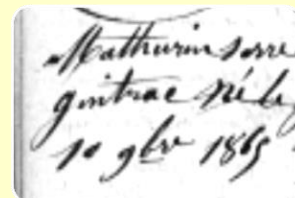 Mathurin serre
gintrac né le
10 9bre 1865